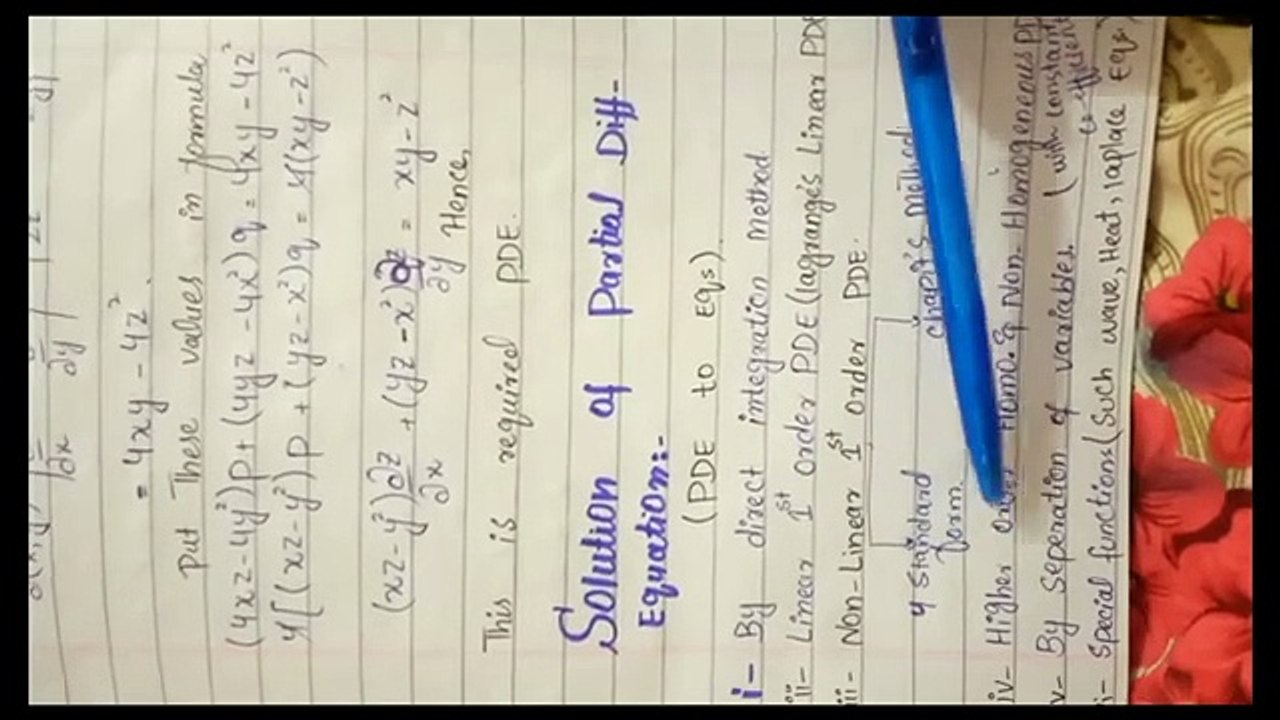 = 4xy - 4z²
put These values in formula
(4xz - 4y²)p + (4yz - 4x²)q = 4xy - 4z²
4[(xz - y²)p + (yz - x²)q = 4(xy - z²)
(xz - y²)∂z/∂x + (yz - x²)∂z/∂y = xy - z²
Hence,
This is required PDE.
Solution of Partial Diff-
Equation:-
(PDE to Eqs)
i- By direct integration Method
ii- Linear 1st Order PDE (lagrange's Linear PDE
iii- Non-Linear 1st order PDE.
4 standard form
charpit's Method
iv- Higher Order Homo. & Non-Homogeneous PD
(with constant co-efficient
v- By Seperation of variables.
i- Special functions (Such wave, Heat, laplace Eqs)